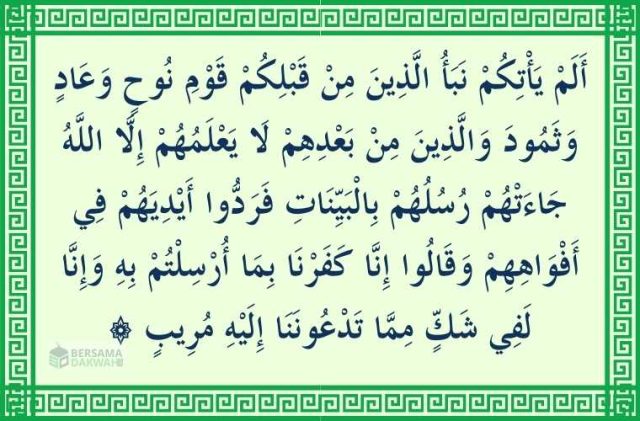 أَلَمْ يَأْتِكُمْ نَبَأُ الَّذِينَ مِنْ قَبْلِكُمْ قَوْمِ نُوحٍ وَعَادٍ
وَثَمُودَ وَالَّذِينَ مِنْ بَعْدِهِمْ لَا يَعْلَمُهُمْ إِلَّا اللَّهُ
جَاءَتْهُمْ رُسُلُهُمْ بِالْبَيِّنَاتِ فَرَدُّوا أَيْدِيَهُمْ فِي
أَفْوَاهِهِمْ وَقَالُوا إِنَّا كَفَرْنَا بِمَا أُرْسِلْتُمْ بِهِ وَإِنَّا
لَفِي شَكٍّ مِمَّا تَدْعُونَنَا إِلَيْهِ مُرِيبٍ ۞
BERSAMA
DAKWAH